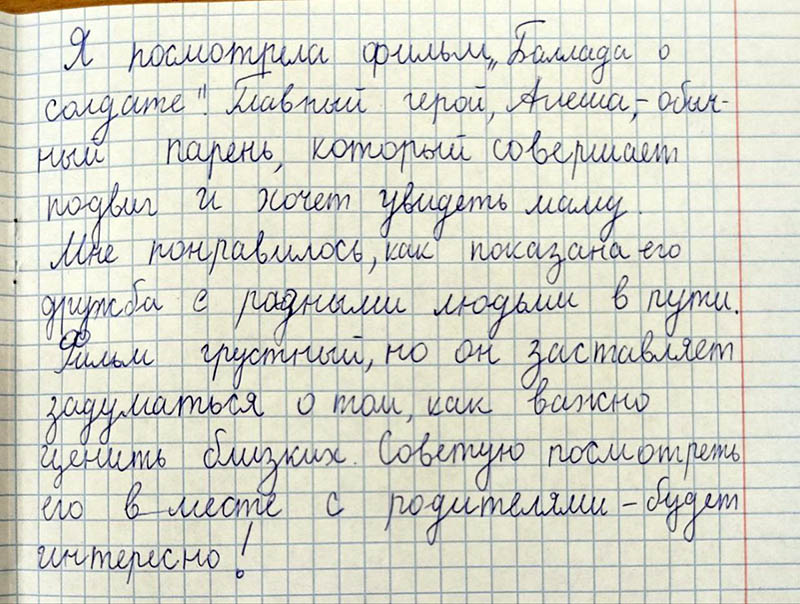 Я посмотрела фильм „Баллада о
солдате". Главный герой, Алеша, – обыч-
ный парень, который совершает
подвиг и хочет увидеть маму.
Мне понравилось, как показана его
дружба с разными людьми в пути.
Фильм грустный, но он заставляет
задуматься о том, как важно
ценить близких. Советую посмотреть
его в месте с родителями – будет
интересно!